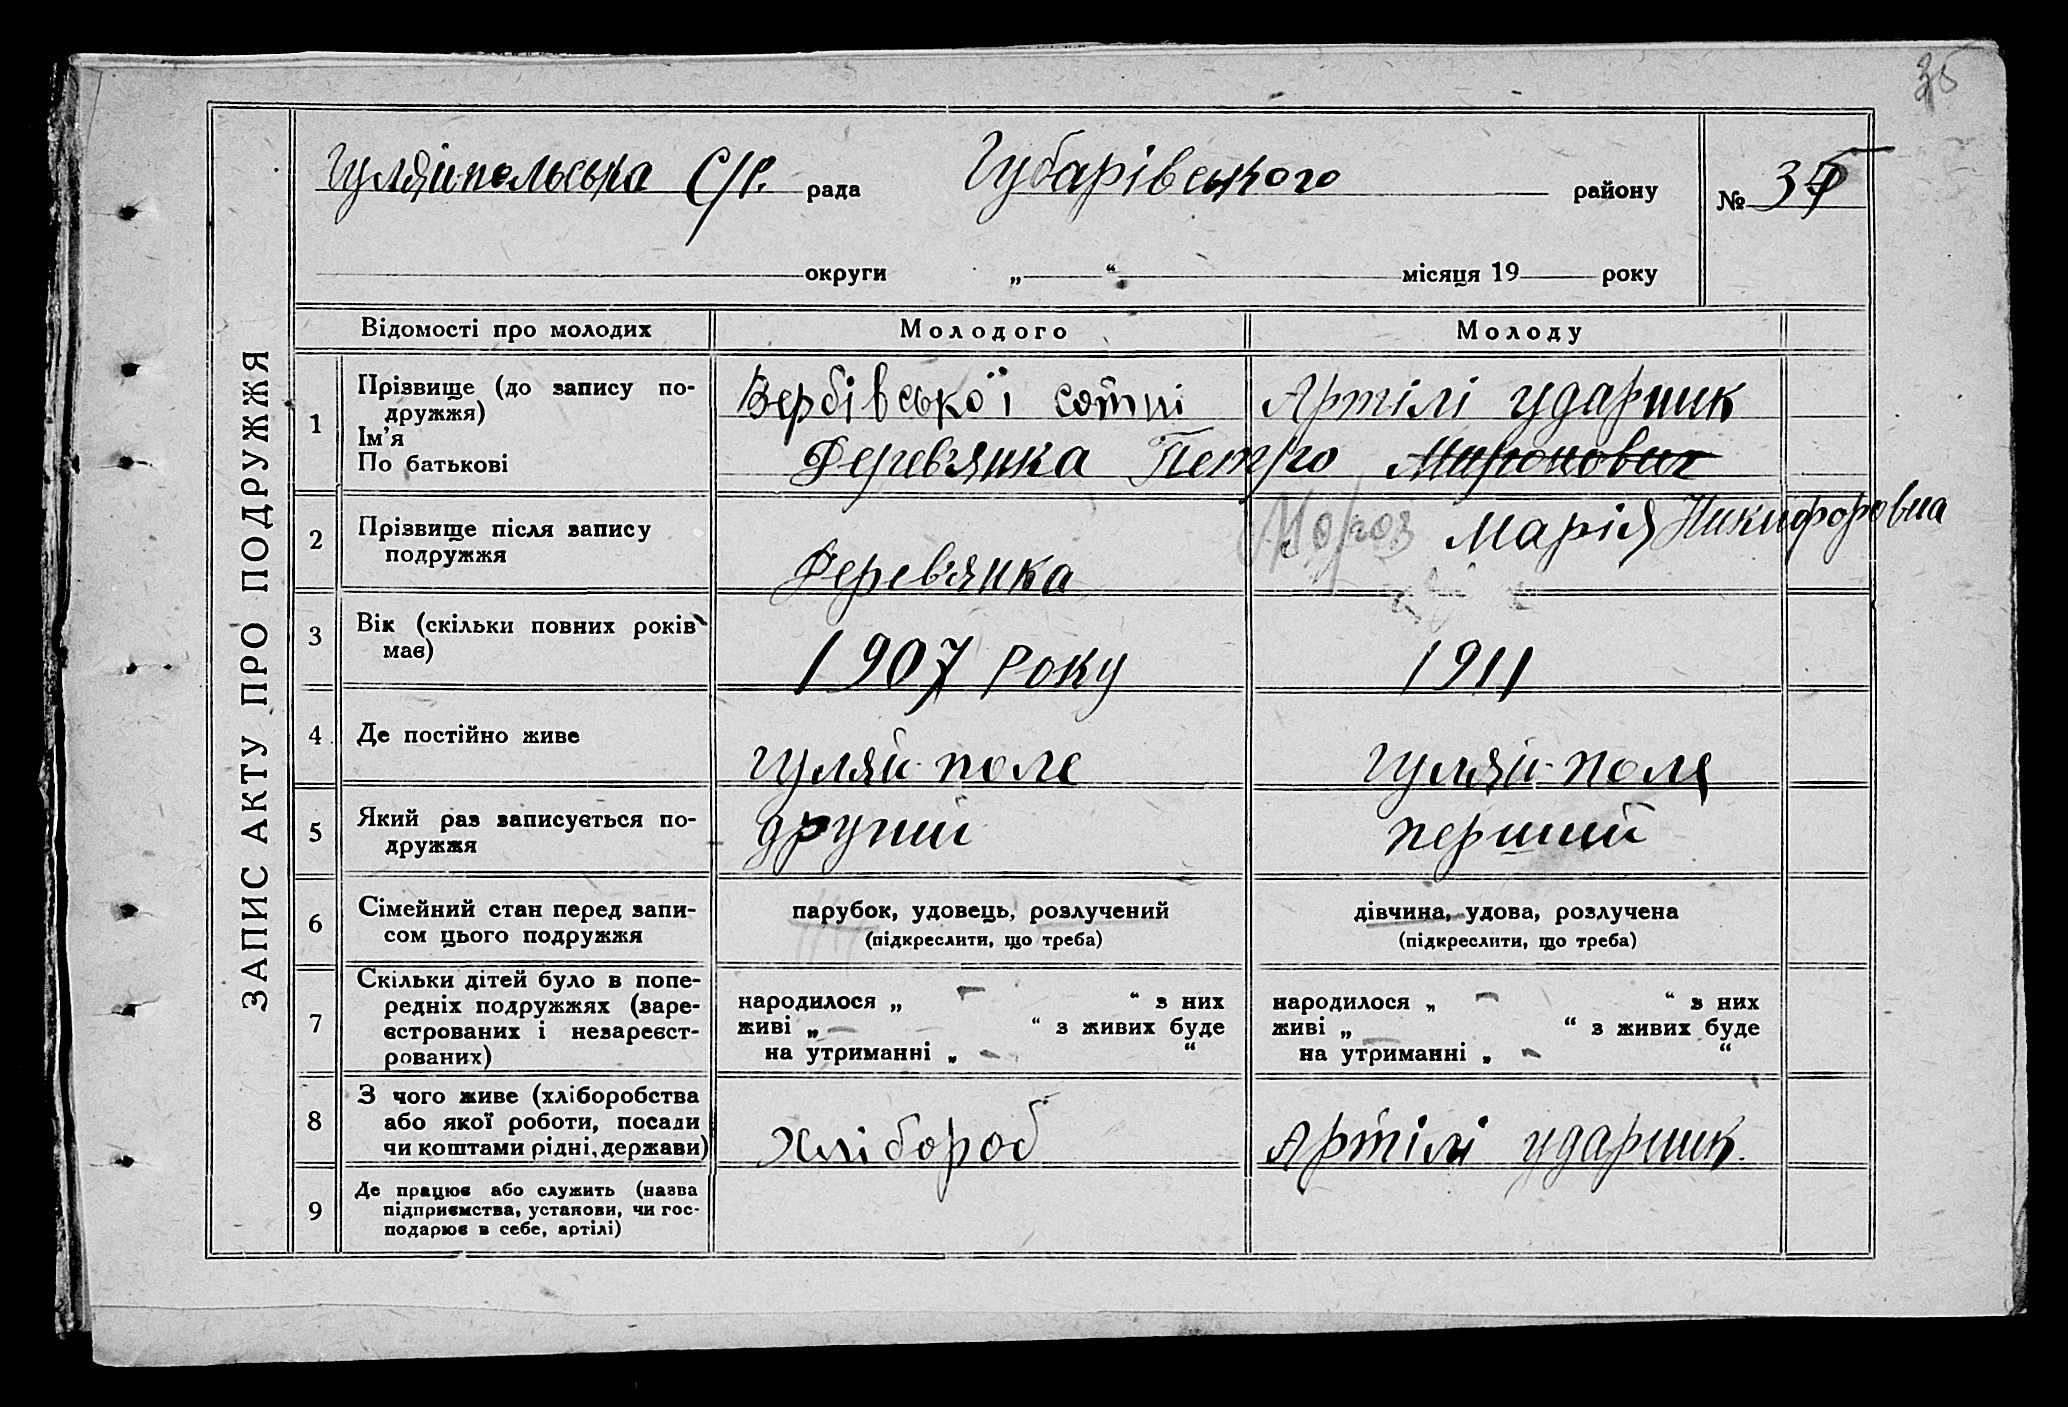 35
ЗАПИС АКТУ ПРО ПОДРУЖЖЯ
Гуляйпольська С/р. рада Губарівського району № 35
округи „ “ місяця 19 року
Відомості про молодих Молодого Молоду
1 Прізвище (до запису по-
дружжя)
Ім’я
По батькові
Вербівської сотні Артілі ударник
Деревянка Петро Миронович
2 Прізвище після запису
подружжя
Мороз Марія Никифоровна
Деревянка
3 Вік (скільки повних років
має)
1907 року 1911
4 Де постійно живе
Гуляй-поле Гуляй-поля
5 Який раз записується по-
дружжя
другий перший
6 Сімейний стан перед запи-
сом цього подружжя
парубок, удовець, розлучений
(підкреслити, що треба)
дівчина, удова, розлучена
(підкреслити, що треба)
7 Скільки дітей було в попе-
редніх подружжях (заре-
єстрованих і незареєст-
рованих)
народилося „ – “ з них
живі „ – “ з живих буде
на утриманні „ - “
народилося „ – “ з них
живі „ – “ з живих буде
на утриманні „ - “
8 З чого живе (хліборобства
або якої роботи, посади
чи коштами рідні, держави)
Хлібороб Артілі ударник.
9 Де працює або служить (назва
підприємства, установи, чи гос-
подарює в себе, артілі)